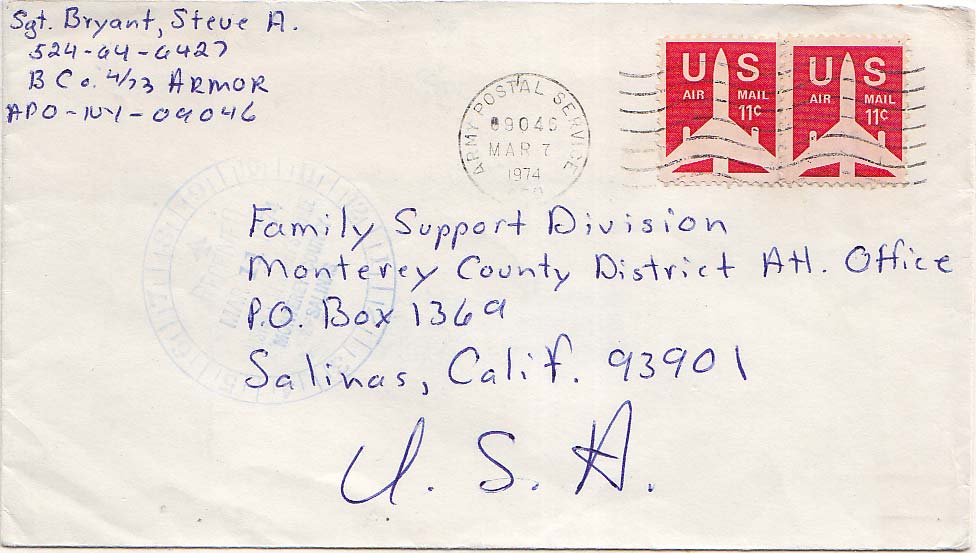 Sgt. Bryant, Steve A.
B Co. 4/73 ARMOR
APO-NY-09046
ARMY POSTAL SERVICE
09046
MAR 7
1974
US
AIR MAIL
11c
US
AIR MAIL
11c
Family Support Division
Monterey County District Att. Office
P.O. Box 1369
Salinas, Calif. 93901
U.S.A.